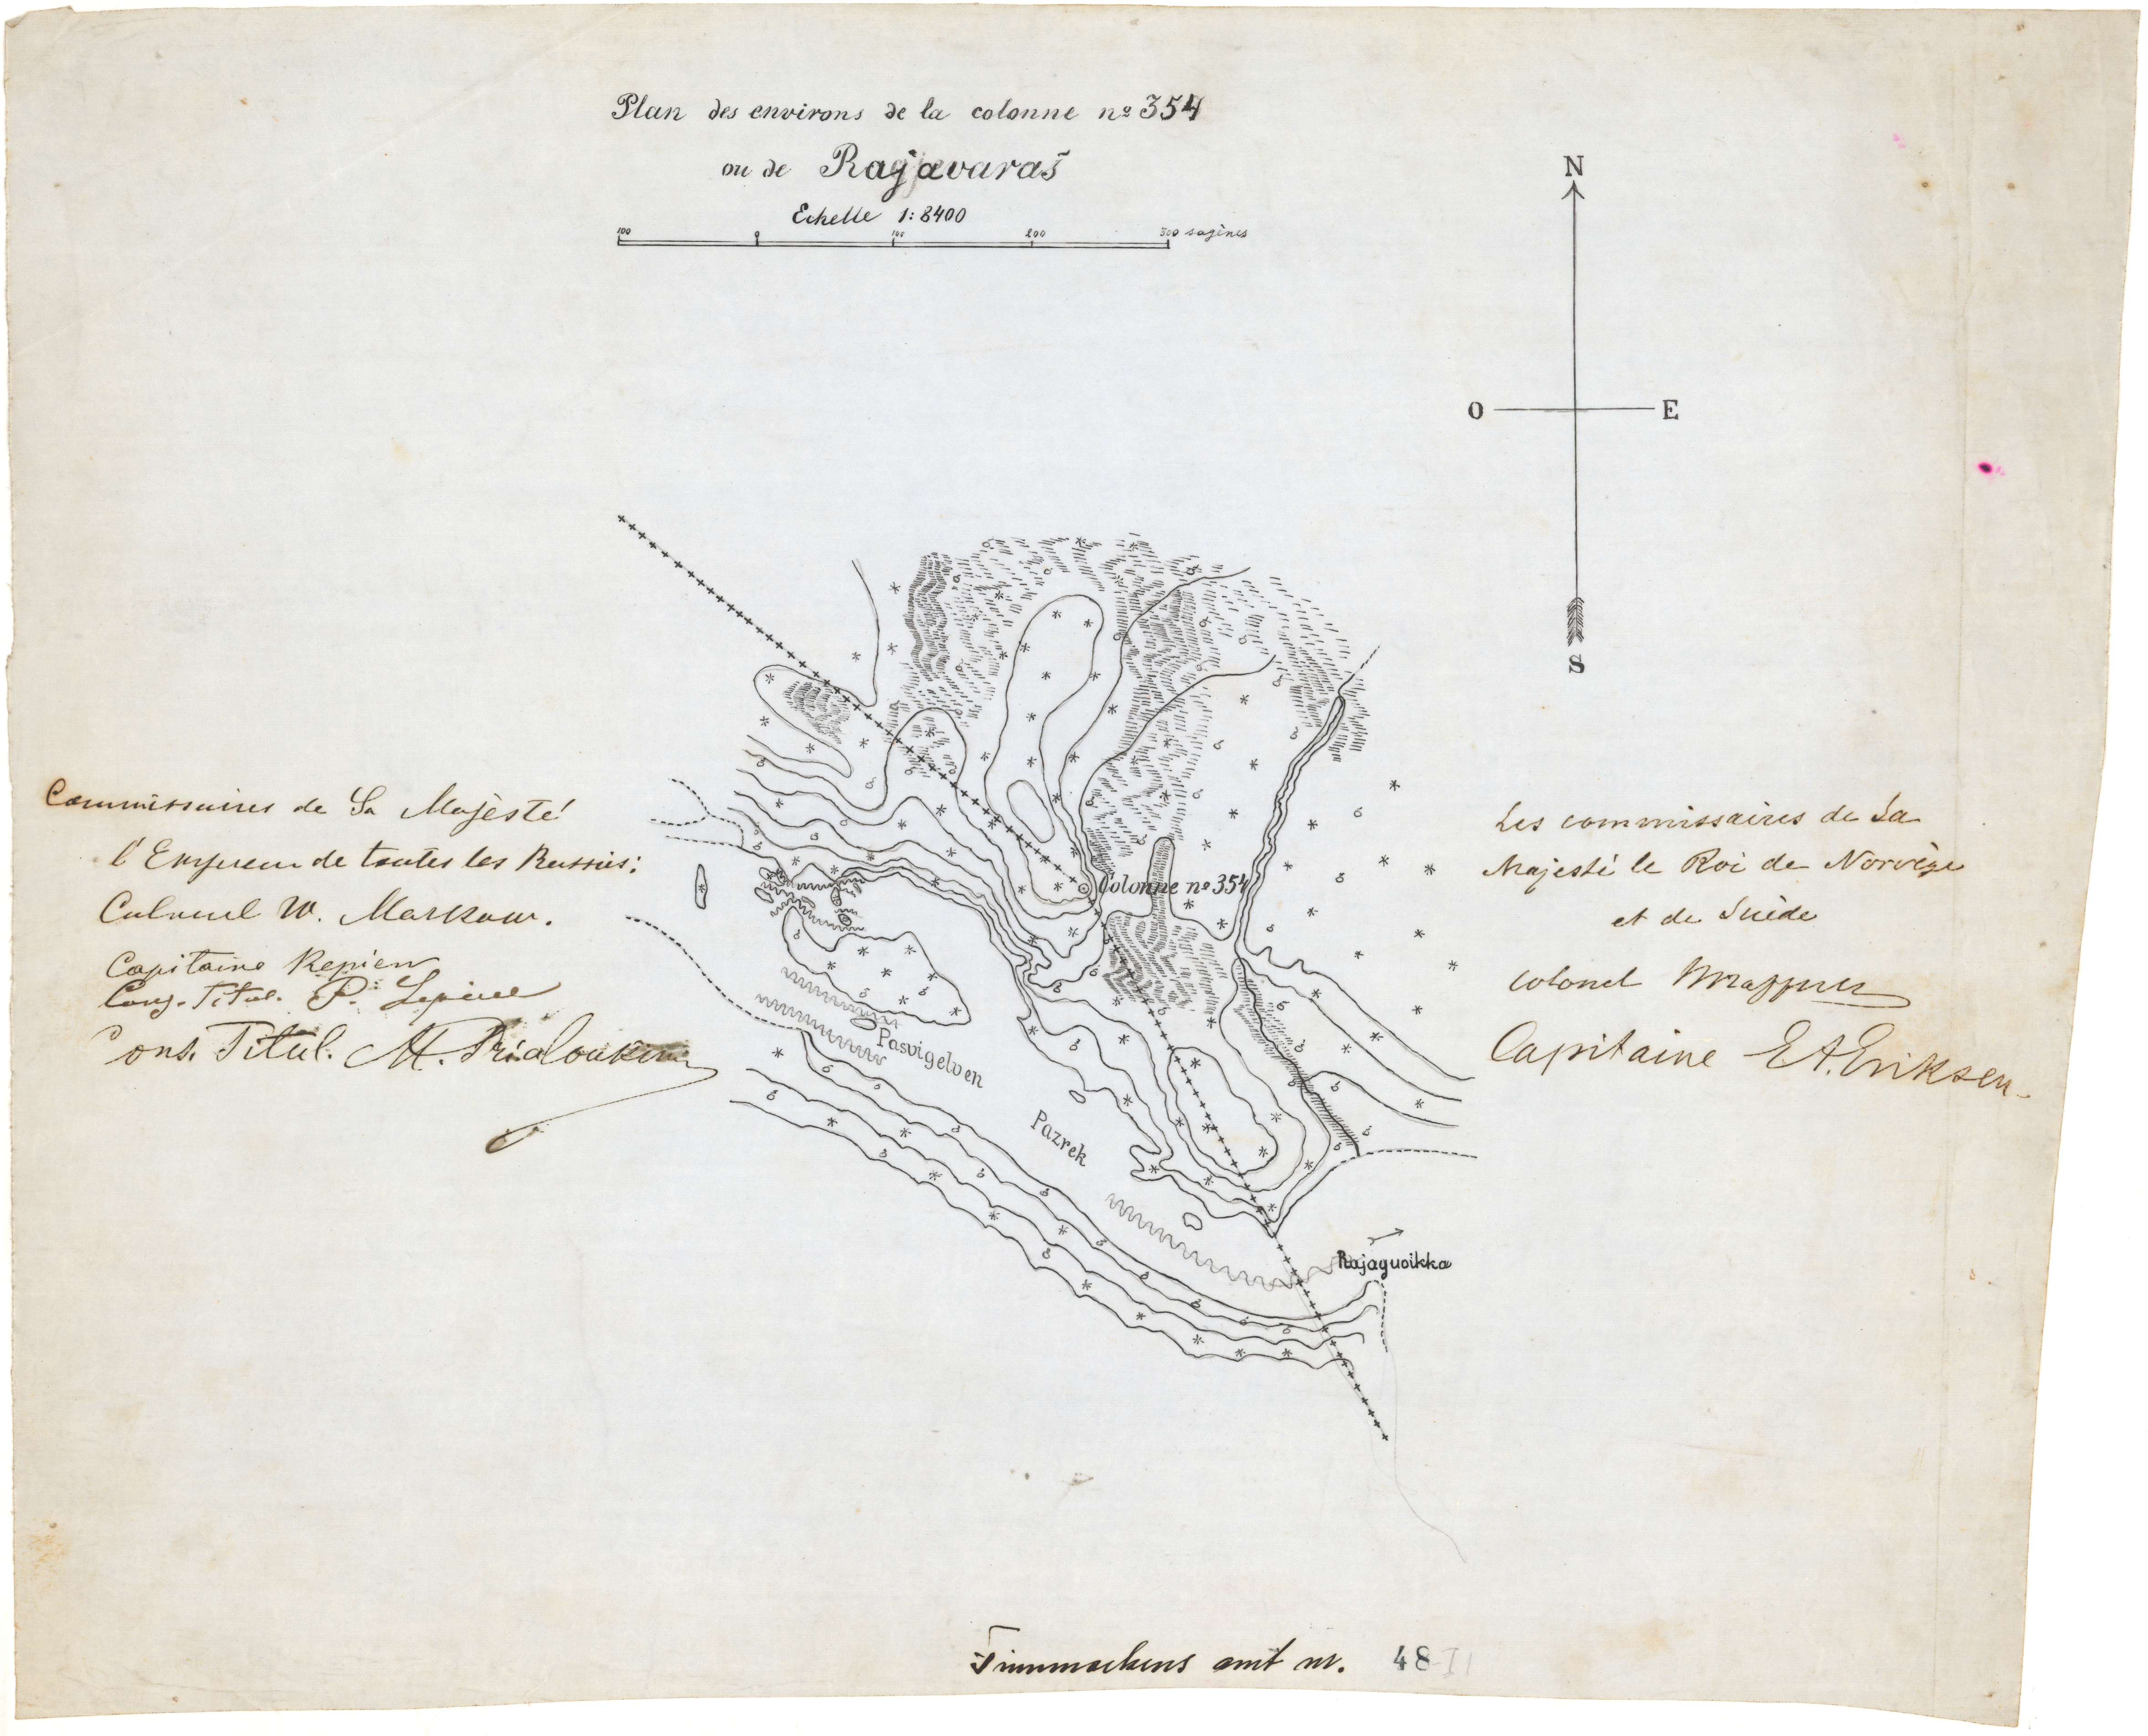 Plan des environs de la colonne nº 354
ou de Rajavaraš
Echelle 1:8400
100 0 100 200 300 sagènes
N
O E
S
Commissaires de Sa Majesté
l'Empereur de toutes les Russies:
Colonel W. Markow.
Capitaine Repiew
Cons. Titul. P.
Cons. Titul. M.
Les commissaires de Sa
Majesté le Roi de Norvège
et de Suède
colonel
Capitaine E.A. Eriksen
Colonne nº 354
Pasvigelven
Pazrek
Rajaguoikka
Finnmarkens amt nr. 48 II